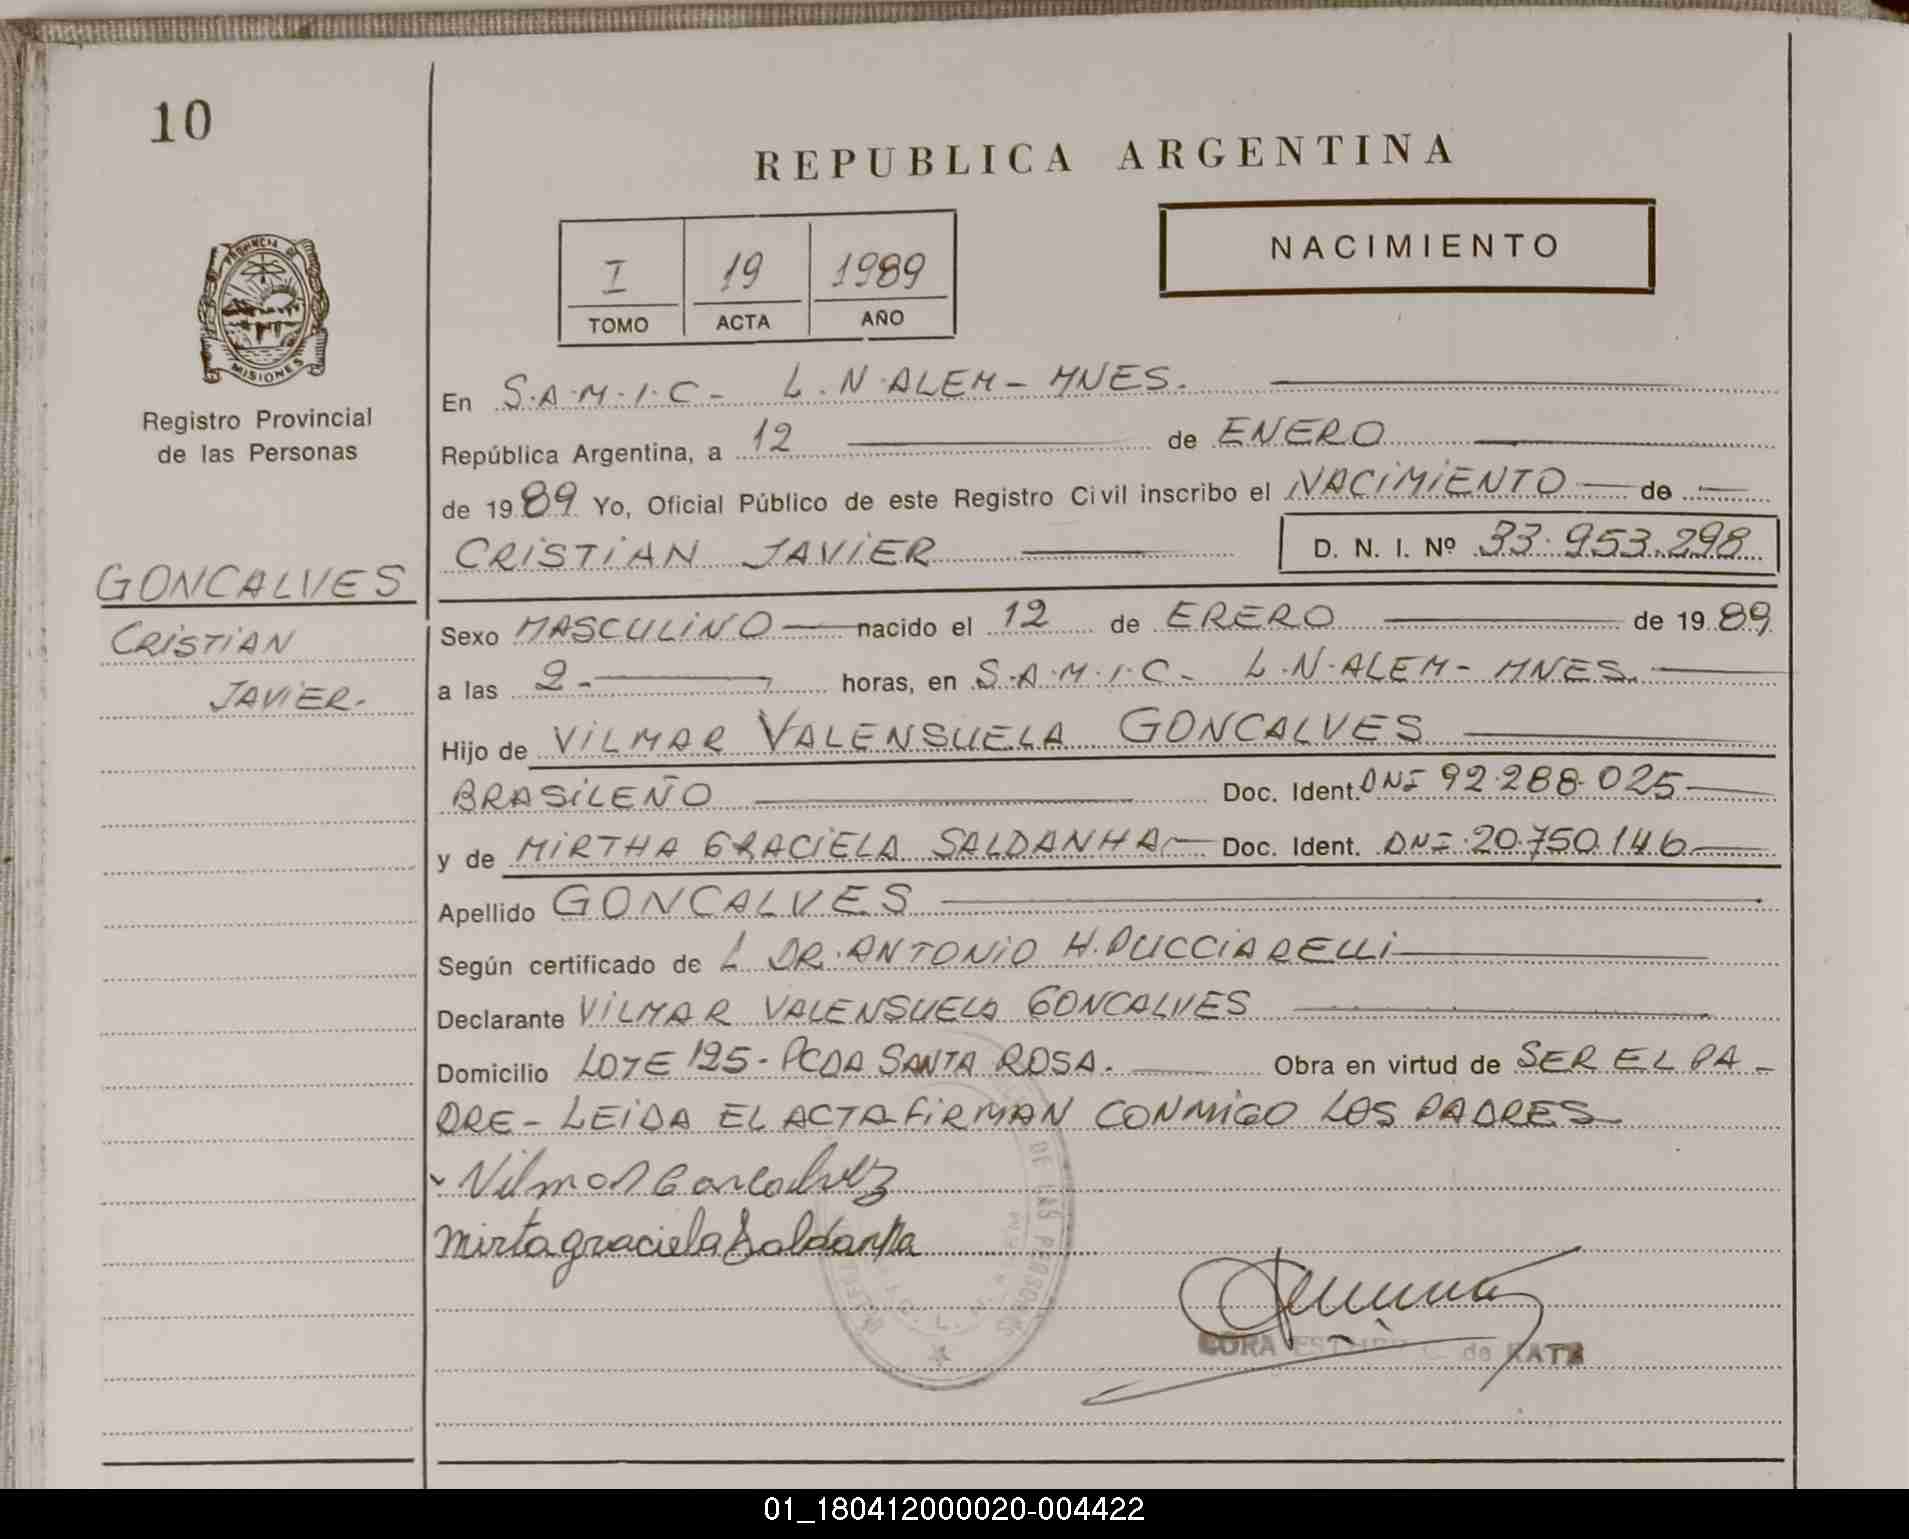 10
REPUBLICA ARGENTINA
NACIMIENTO
I 19 1989
TOMO ACTA AÑO
PROVINCIA DE
MISIONES
Registro Provincial
de las Personas
GONCALVES
CRISTIAN
JAVIER.
En S.A.M.I.C- L.N.ALEM- MNES.
República Argentina, a 12 de ENERO
de 1989 Yo, Oficial Público de este Registro Civil inscribo el NACIMIENTO de
CRISTIAN JAVIER D. N. I. Nº 33.953.298
Sexo MASCULINO nacido el 12 de ERERO de 1989
a las 2- horas, en S.A.M.I.C- L.N.ALEM- MNES.
Hijo de VILMAR VALENSUELA GONCALVES
BRASILEÑO Doc. Ident. DNI 92.288.025
y de MIRTHA GRACIELA SALDANHA Doc. Ident. DNI.20.750.146
Apellido GONCALVES
Según certificado de L DR. ANTONIO H. PUCCIARELLI
Declarante VILMAR VALENSUELA GONCALVES
Domicilio LOTE 125- PCDA SANTA ROSA. Obra en virtud de SER EL PA-
DRE- LEIDA EL ACTA FIRMAN CONMIGO LOS PADRES
Vilmar Goncalvez
Mirta graciela Saldanha
DE LAS PERSONAS
L. N. ALEM
CORA ESTHER C. de KATZ
01_180412000020-004422